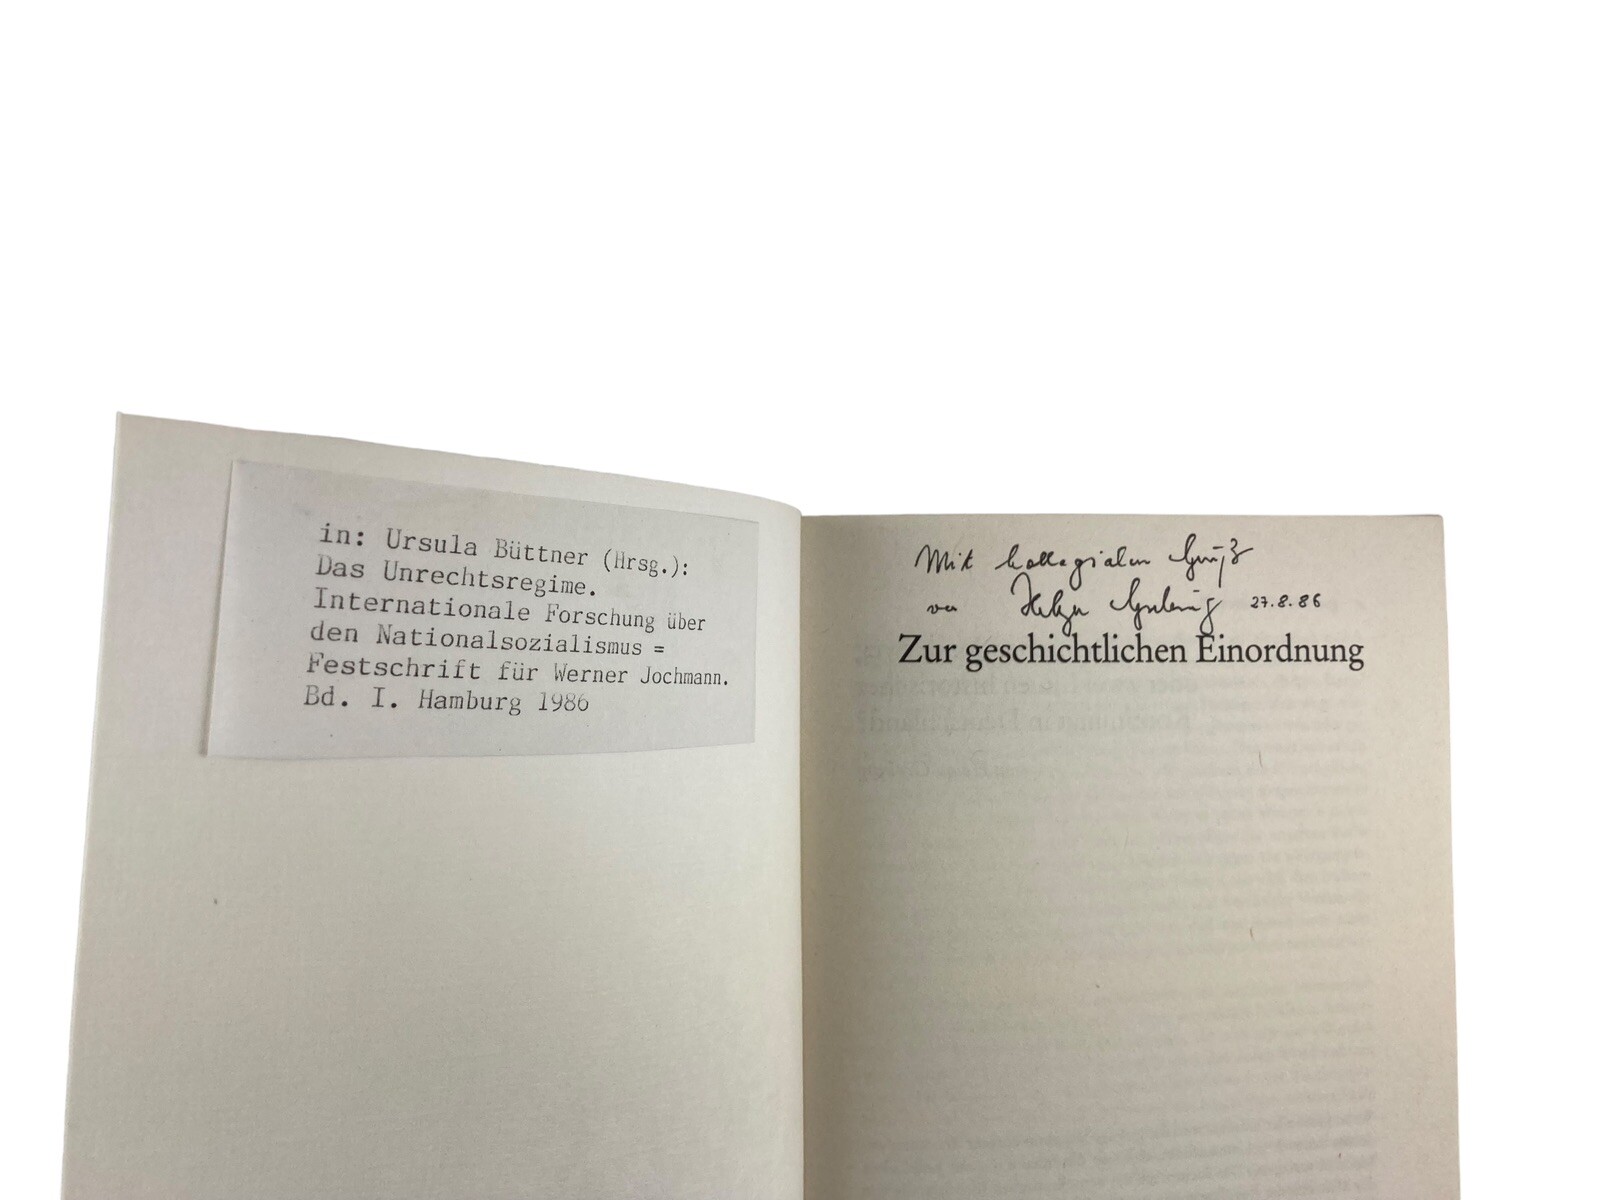 in: Ursula Büttner (Hrsg.):
Das Unrechtsregime.
Internationale Forschung über
den Nationalsozialismus =
Festschrift für Werner Jochmann.
Bd. I. Hamburg 1986
Mit kollegialem Gruß
von Helga Grebing 27.8.86
Zur geschichtlichen Einordnung